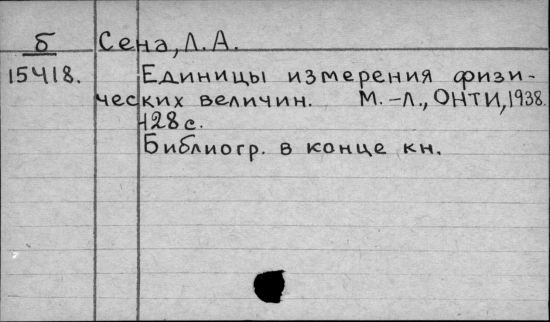 б Сена, Л.А.
15418. Единицы измерения физи-
ческих величин. М.-Л., ОНТИ, 1938.
128 с.
Библиогр. в конце кн.